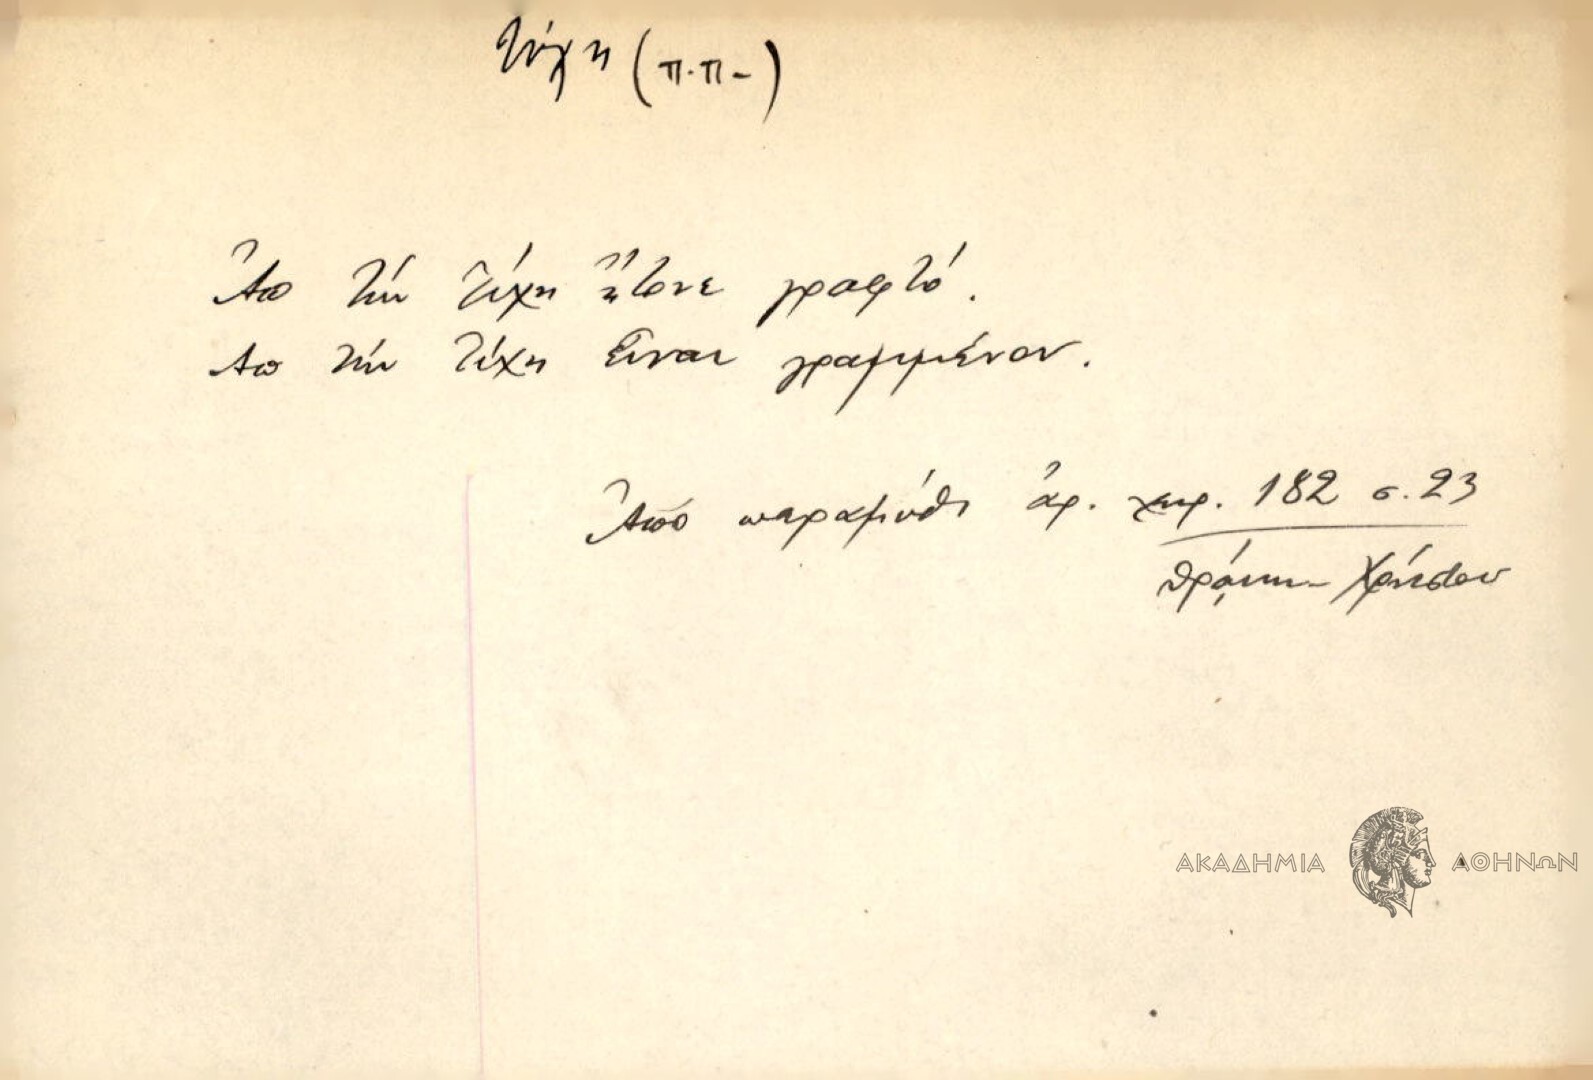 τύχη (π.π-)
Ἀπο τήν τύχη ἤτονε γραφτό.
Απο τήν τύχη εἶναι γραμμένον.
Ἀπό παραμύθι ἀρ. χειρ. 182 σ. 23
Θράκη - Χρήστου
ΑΚΑΔΗΜΙΑ ΑΘΗΝΩΝ